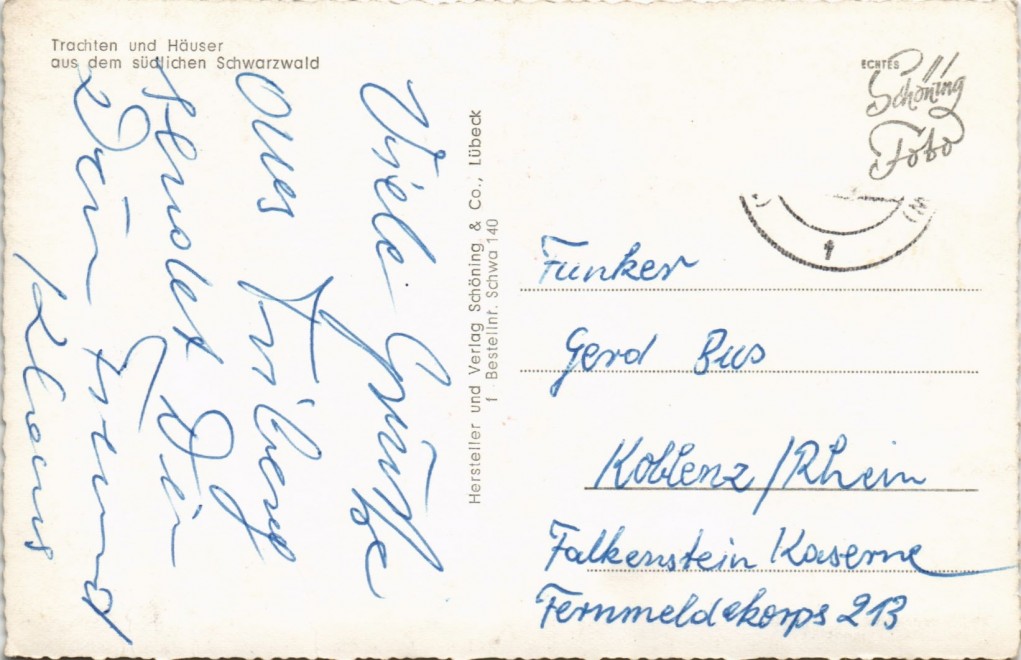 Trachten und Häuser
aus dem südlichen Schwarzwald
Viele Grüße
aus Freiburg
sendet Dir
Dein Freund
Klaus
Hersteller und Verlag Schöning & Co., Lübeck
1 Bestellnr. Schwa 140
ECHTES
Schöning
Foto
1
Funker
Gerd Bus
Koblenz/Rhein
Falkenstein Kaserne
Fernmeldekorps 213